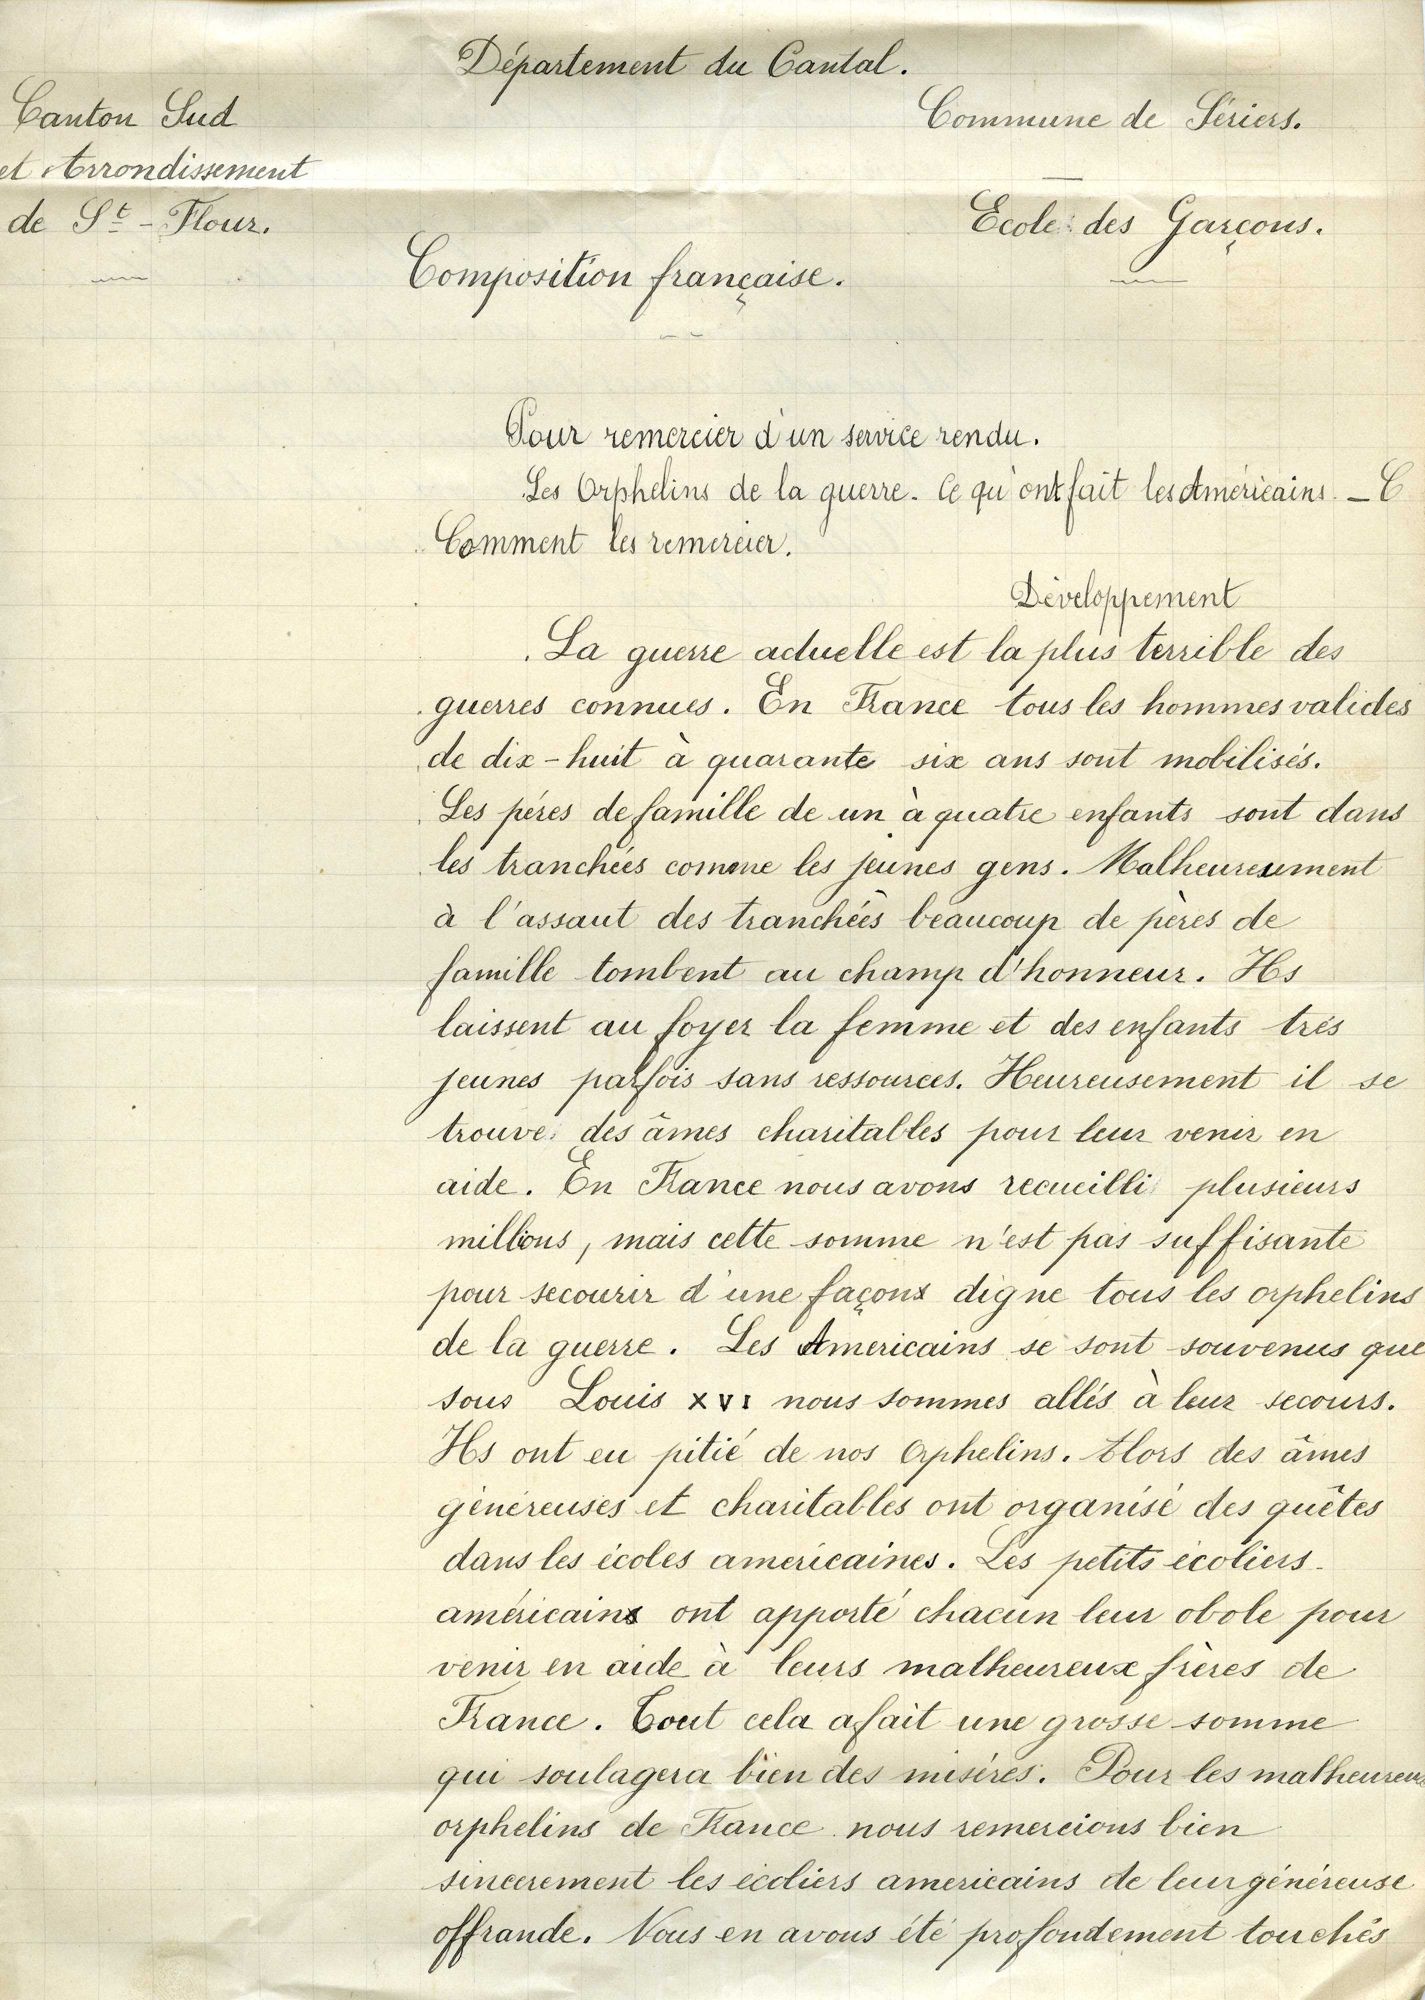 Département du Cantal.
Canton Sud
et Arrondissement
de St - Flour.
Commune de Sériers.
Ecole des Garçons.
Composition française.
Pour remercier d'un service rendu.
Les Orphelins de la guerre. Ce qu'ont fait les Américains - C
Comment les remercier.
Développement
La guerre actuelle est la plus terrible des
guerres connues. En France tous les hommes valides
de dix-huit à quarante six ans sont mobilisés.
Les péres de famille de un à quatre enfants sont dans
les tranchées comme les jeunes gens. Malheureusement
à l'assaut des tranchées beaucoup de pères de
famille tombent au champ d'honneur. Ils
laissent au foyer la femme et des enfants trés
jeunes parfois sans ressources. Heureusement il se
trouve des âmes charitables pour leur venir en
aide. En France nous avons recueilli plusieurs
millions, mais cette somme n'est pas suffisante
pour secourir d'une façon digne tous les orphelins
de la guerre. Les Americains se sont souvenus que
sous Louis XVI nous sommes allés à leur secours.
Ils ont eu pitié de nos Orphelins. Alors des âmes
généreuses et charitables ont organisé des quêtes
dans les écoles americaines. Les petits écoliers
américains ont apporté chacun leur obole pour
venir en aide à leurs malheureux frères de
France. Tout cela a fait une grosse somme
qui soulagera bien des miséres. Pour les malheureux
orphelins de France nous remercions bien
sincerement les écoliers americains de leur généreuse
offrande. Nous en avons été profondement touchés